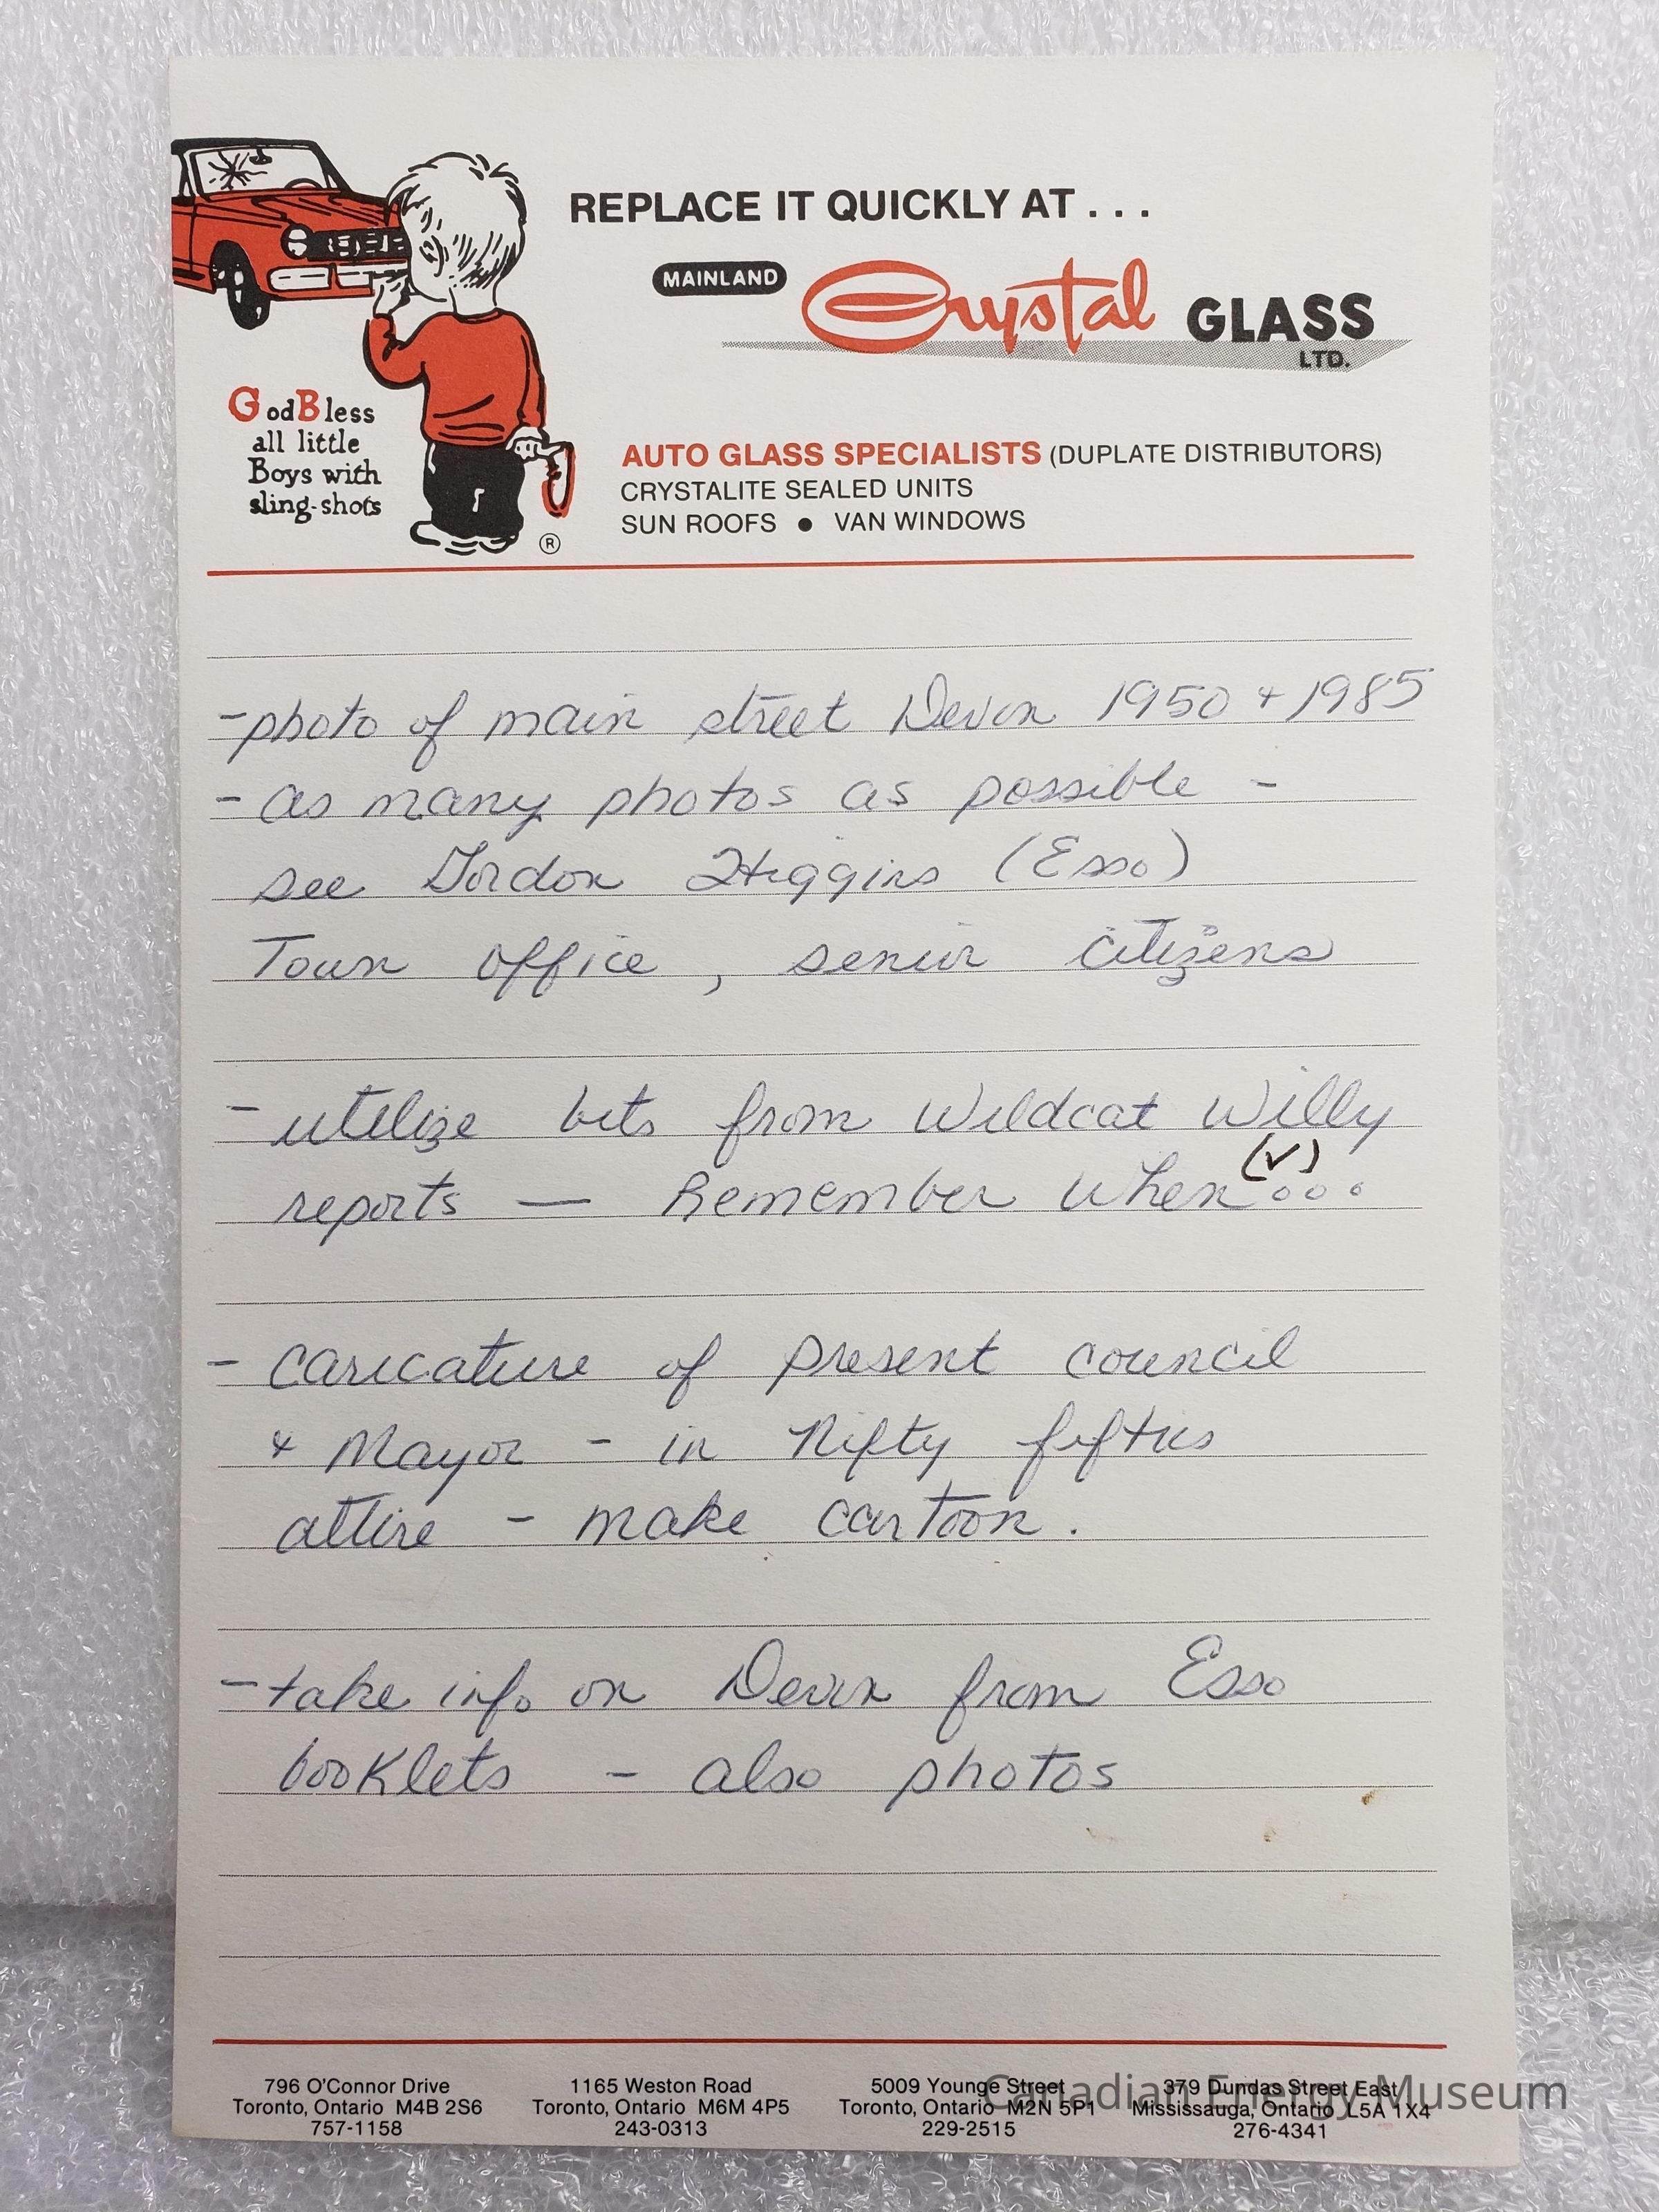 REPLACE IT QUICKLY AT . . .
MAINLAND Crystal GLASS LTD.
God Bless
all little
Boys with
sling-shots
®
AUTO GLASS SPECIALISTS (DUPLATE DISTRIBUTORS)
CRYSTALITE SEALED UNITS
SUN ROOFS ● VAN WINDOWS
- photo of main street Devon 1950 + 1985
- as many photos as possible -
see Gordon Higgins (Esso)
Town office , senior citizens
- utilize bits from Wildcat Willy
(✓)
reports — Remember when...
- caricature of present council
+ Mayor - in Nifty fifties
attire - make cartoon.
- take info on Devon from Esso
booklets - also photos
796 O'Connor Drive
Toronto, Ontario M4B 2S6
757-1158
1165 Weston Road
Toronto, Ontario M6M 4P5
243-0313
5009 Younge Street
Toronto, Ontario M2N 5P1
229-2515
379 Dundas Street East
Mississauga, Ontario L5A 1X4
276-4341
Canadian Energy Museum